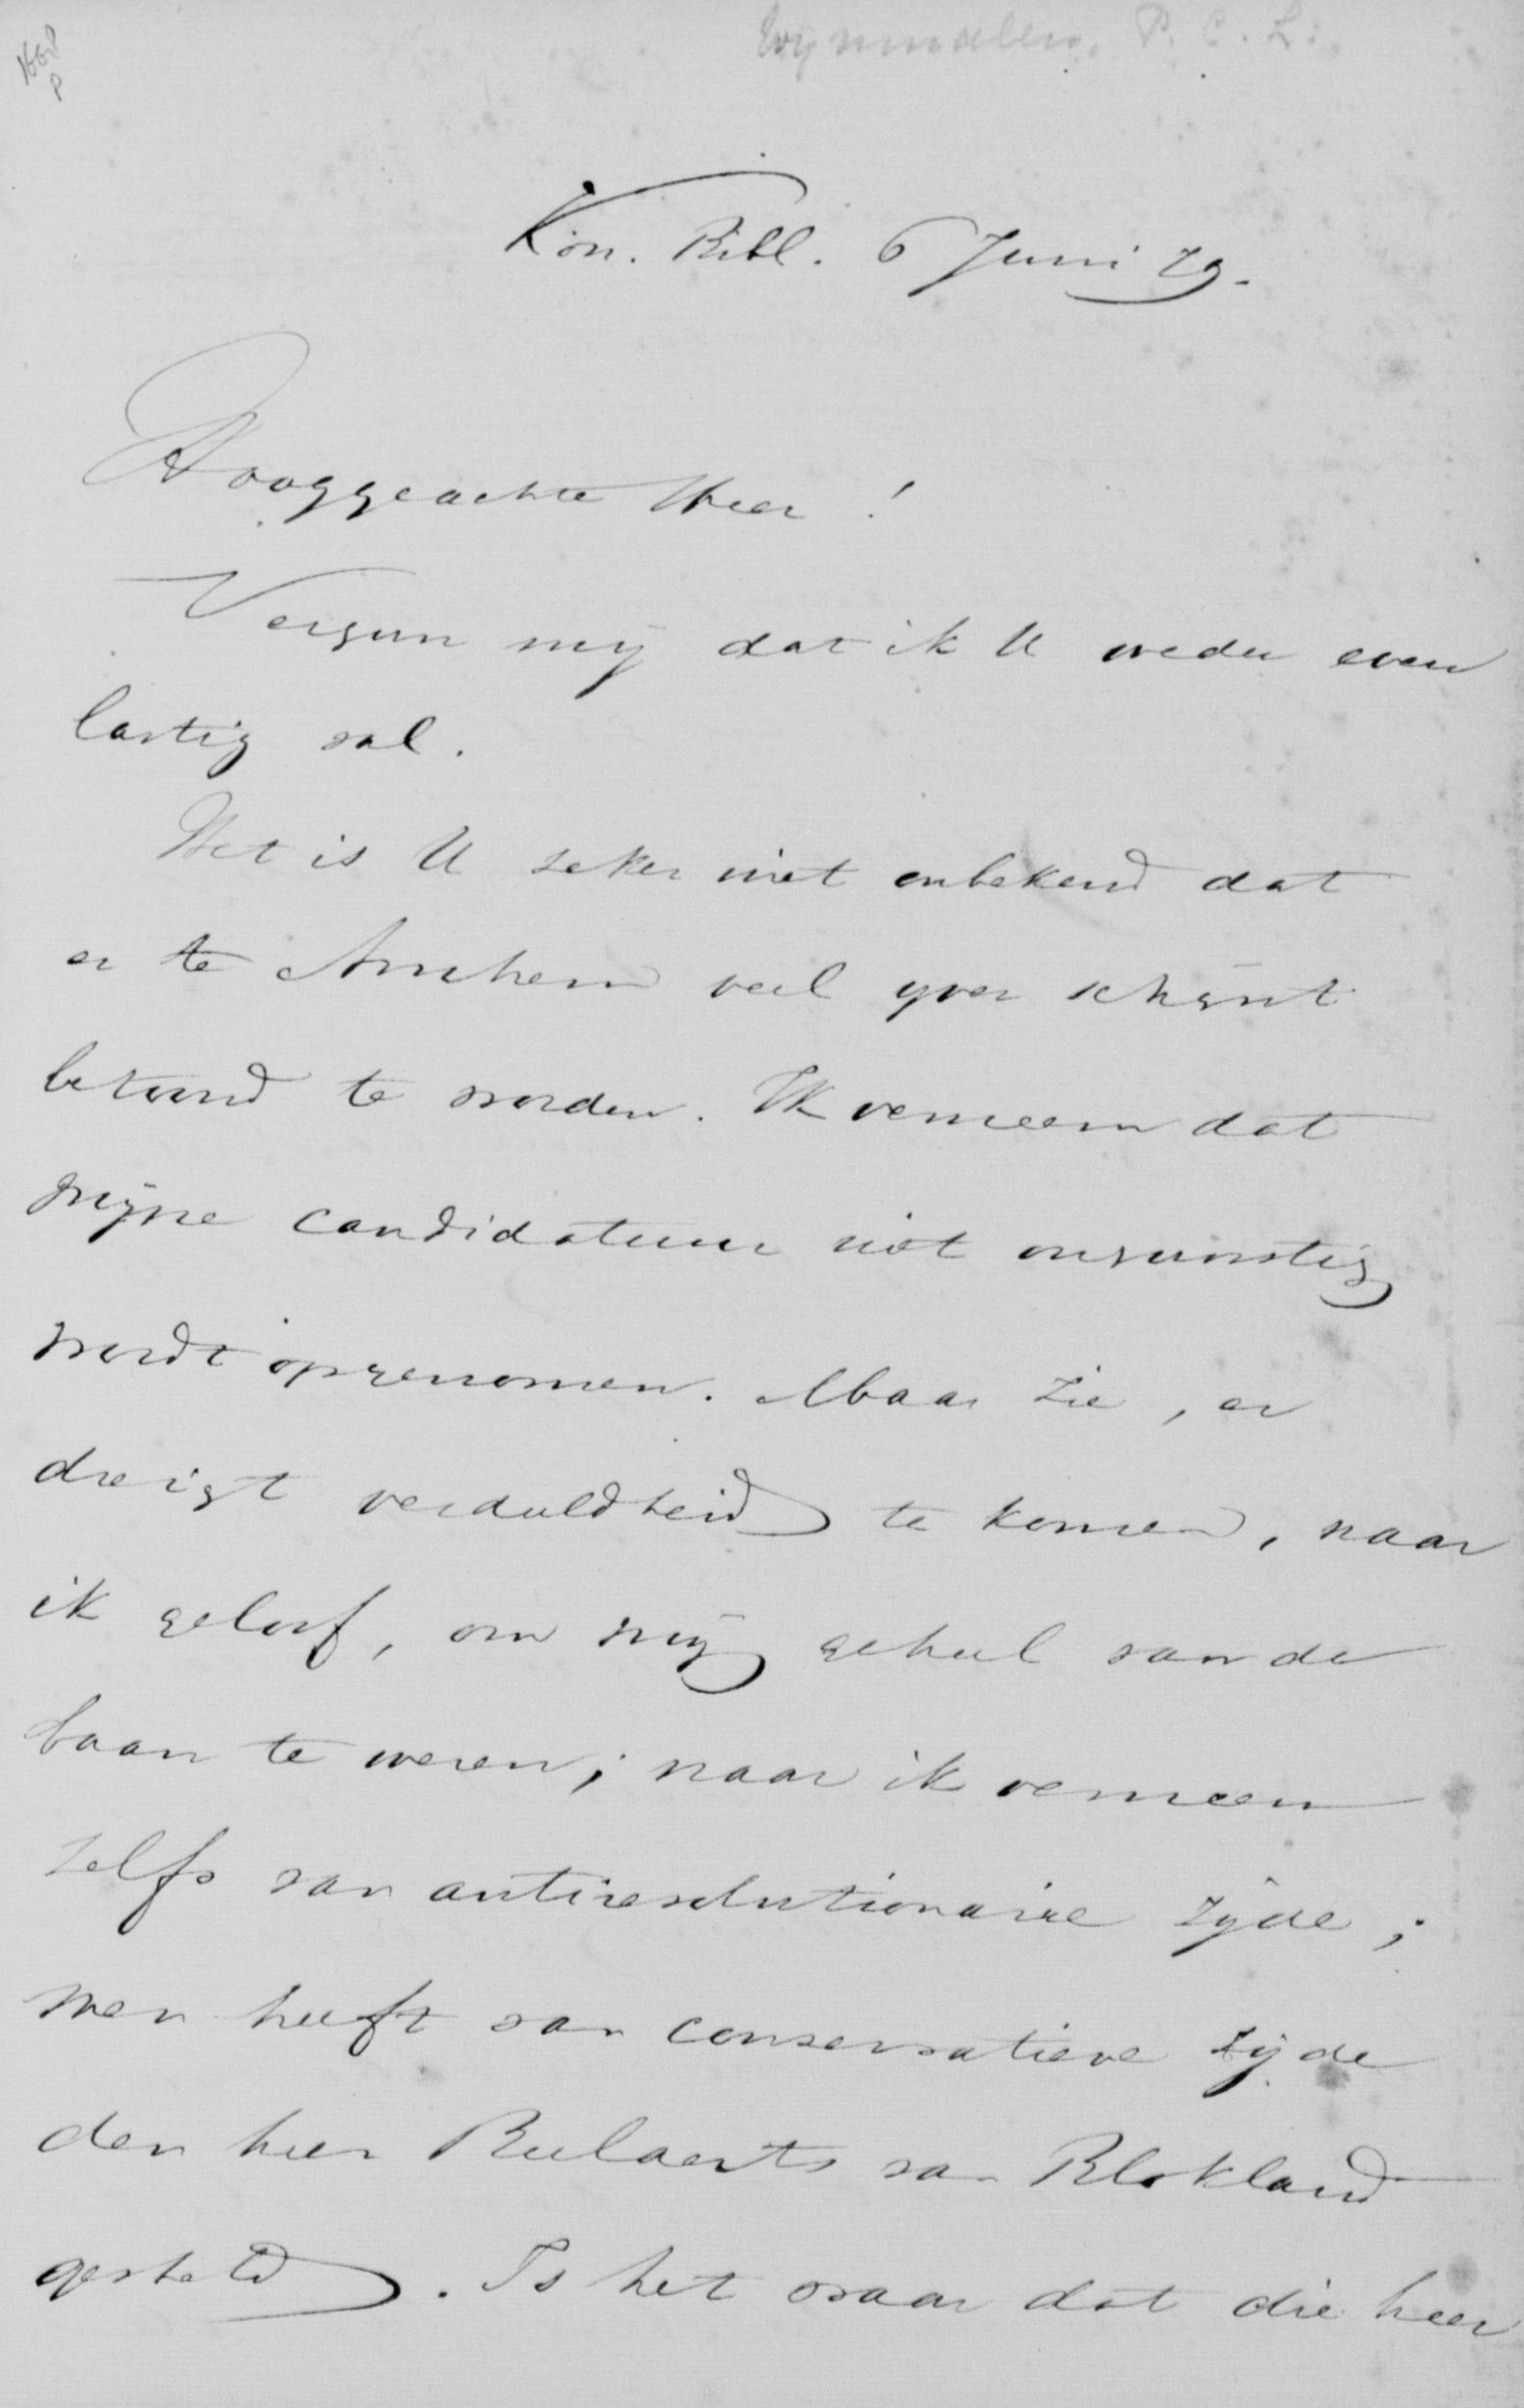 1668
P
Wijnmalen, P. C. L.
Kon. Bibl. 6 Juni 79.
Hooggeachte Heer!
Vergun mij dat ik U weder even
lastig val.
Het is U zeker niet onbekend dat
er te Arnhem veel yver schijnt
betoond te worden. Ik verneem dat
mijne candidatuur niet ongunstig
wordt opgenomen. Maar zie, er
dreigt verdeeldheid te komen, naar
ik geloof, om mij geheel van de
baan te weren; naar ik verneem
zelfs van antirevolutionaire zijde;
men heeft van conservatieve zijde
den heer Beelaerts van Blokland
gesteld. Is het waar dat die heer